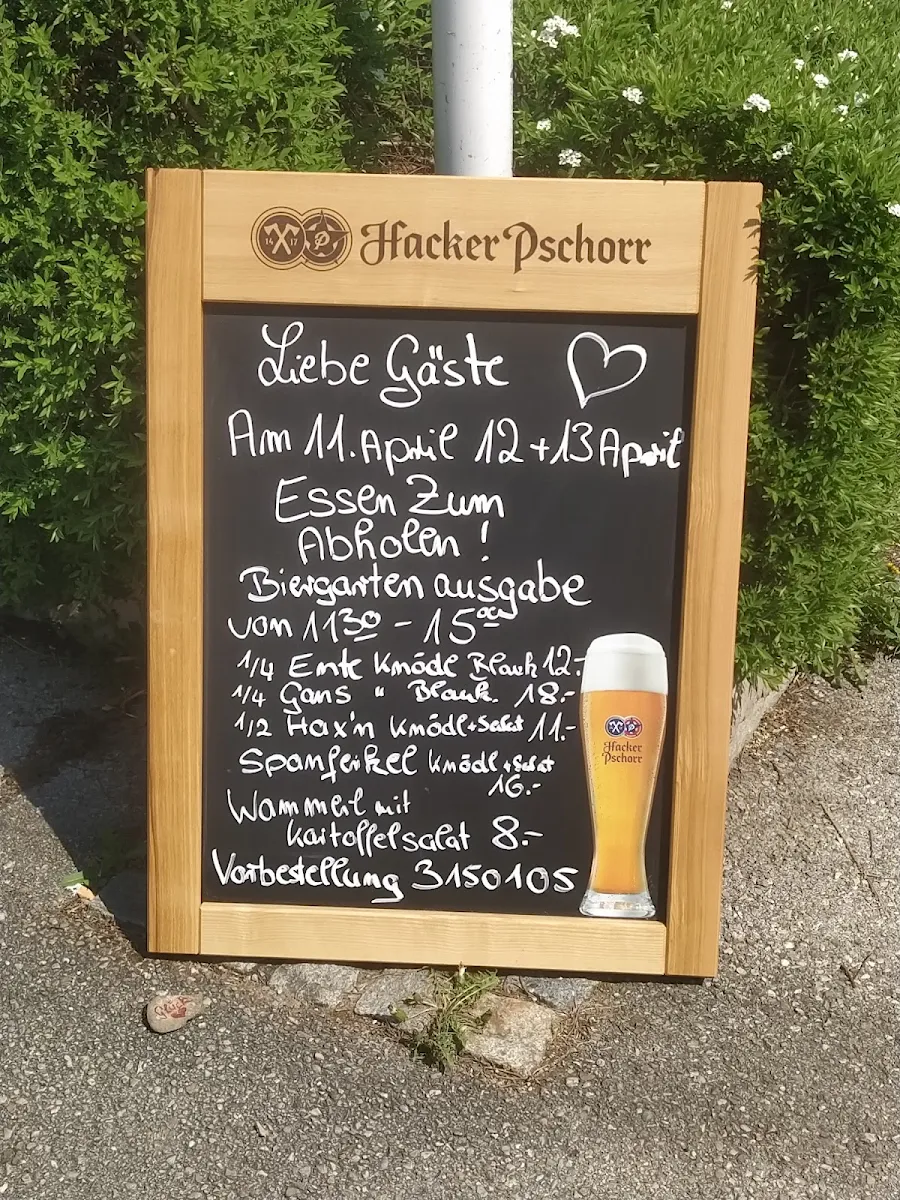 14 17 P Hacker Pschorr
Liebe Gäste
Am 11. April 12 + 13 April
Essen Zum
Abholen !
Biergarten ausgabe
von 11 30 - 15 00
1/4 Ente Knödl Blauk 12.-
1/4 Gans " Blauk. 18.-
1/2 Hax'n Knödl + Salat 11.-
Spanferkel Knödl + Salat
16.-
Wammerl mit
Kartoffelsalat 8.-
Vorbestellung 3150105
Hacker
Pschorr